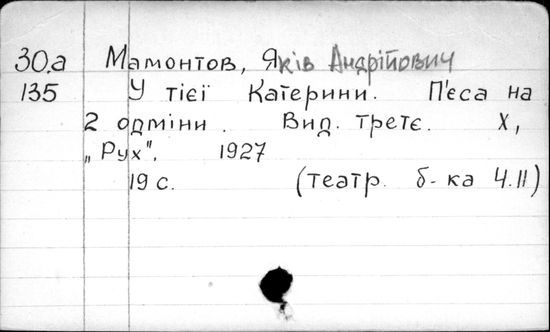 30.а Мамонтов, Яків Андрійович
135 У тієї Катерини. П'єса на
2 одміни. Вид. третє. Х,
„Рух". 1927
19 с. (театр. б-ка Ч.11)